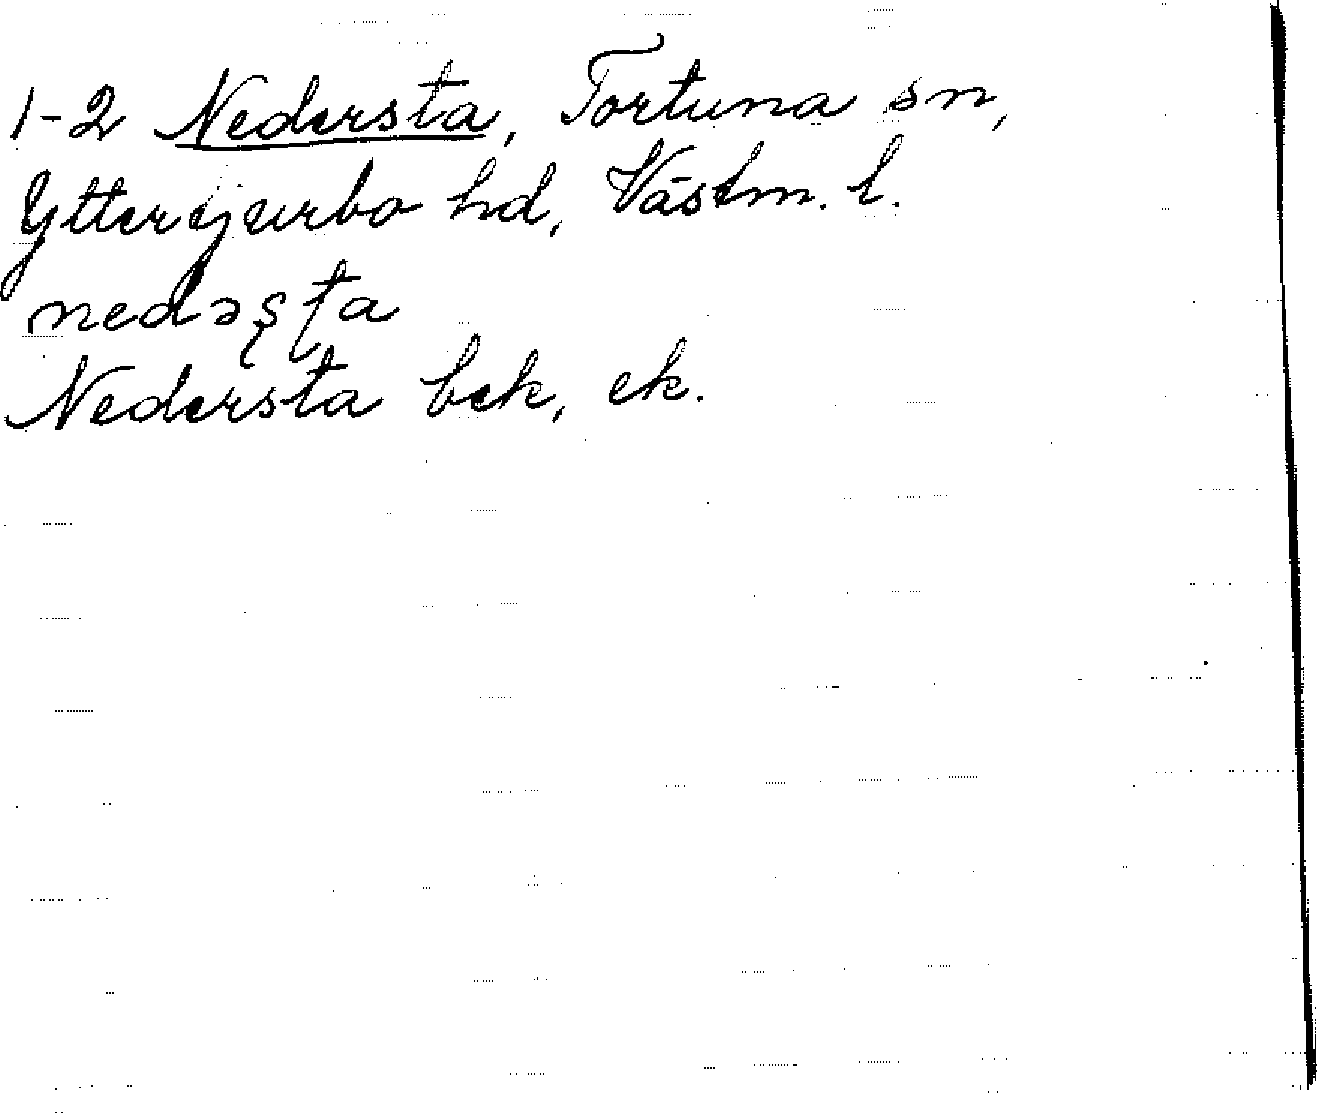 1-2 Nedersta, Tortuna sn,
Yttertjurbo hd, Västm. l.
nedəʂʈa
Nedersta bek, ek.